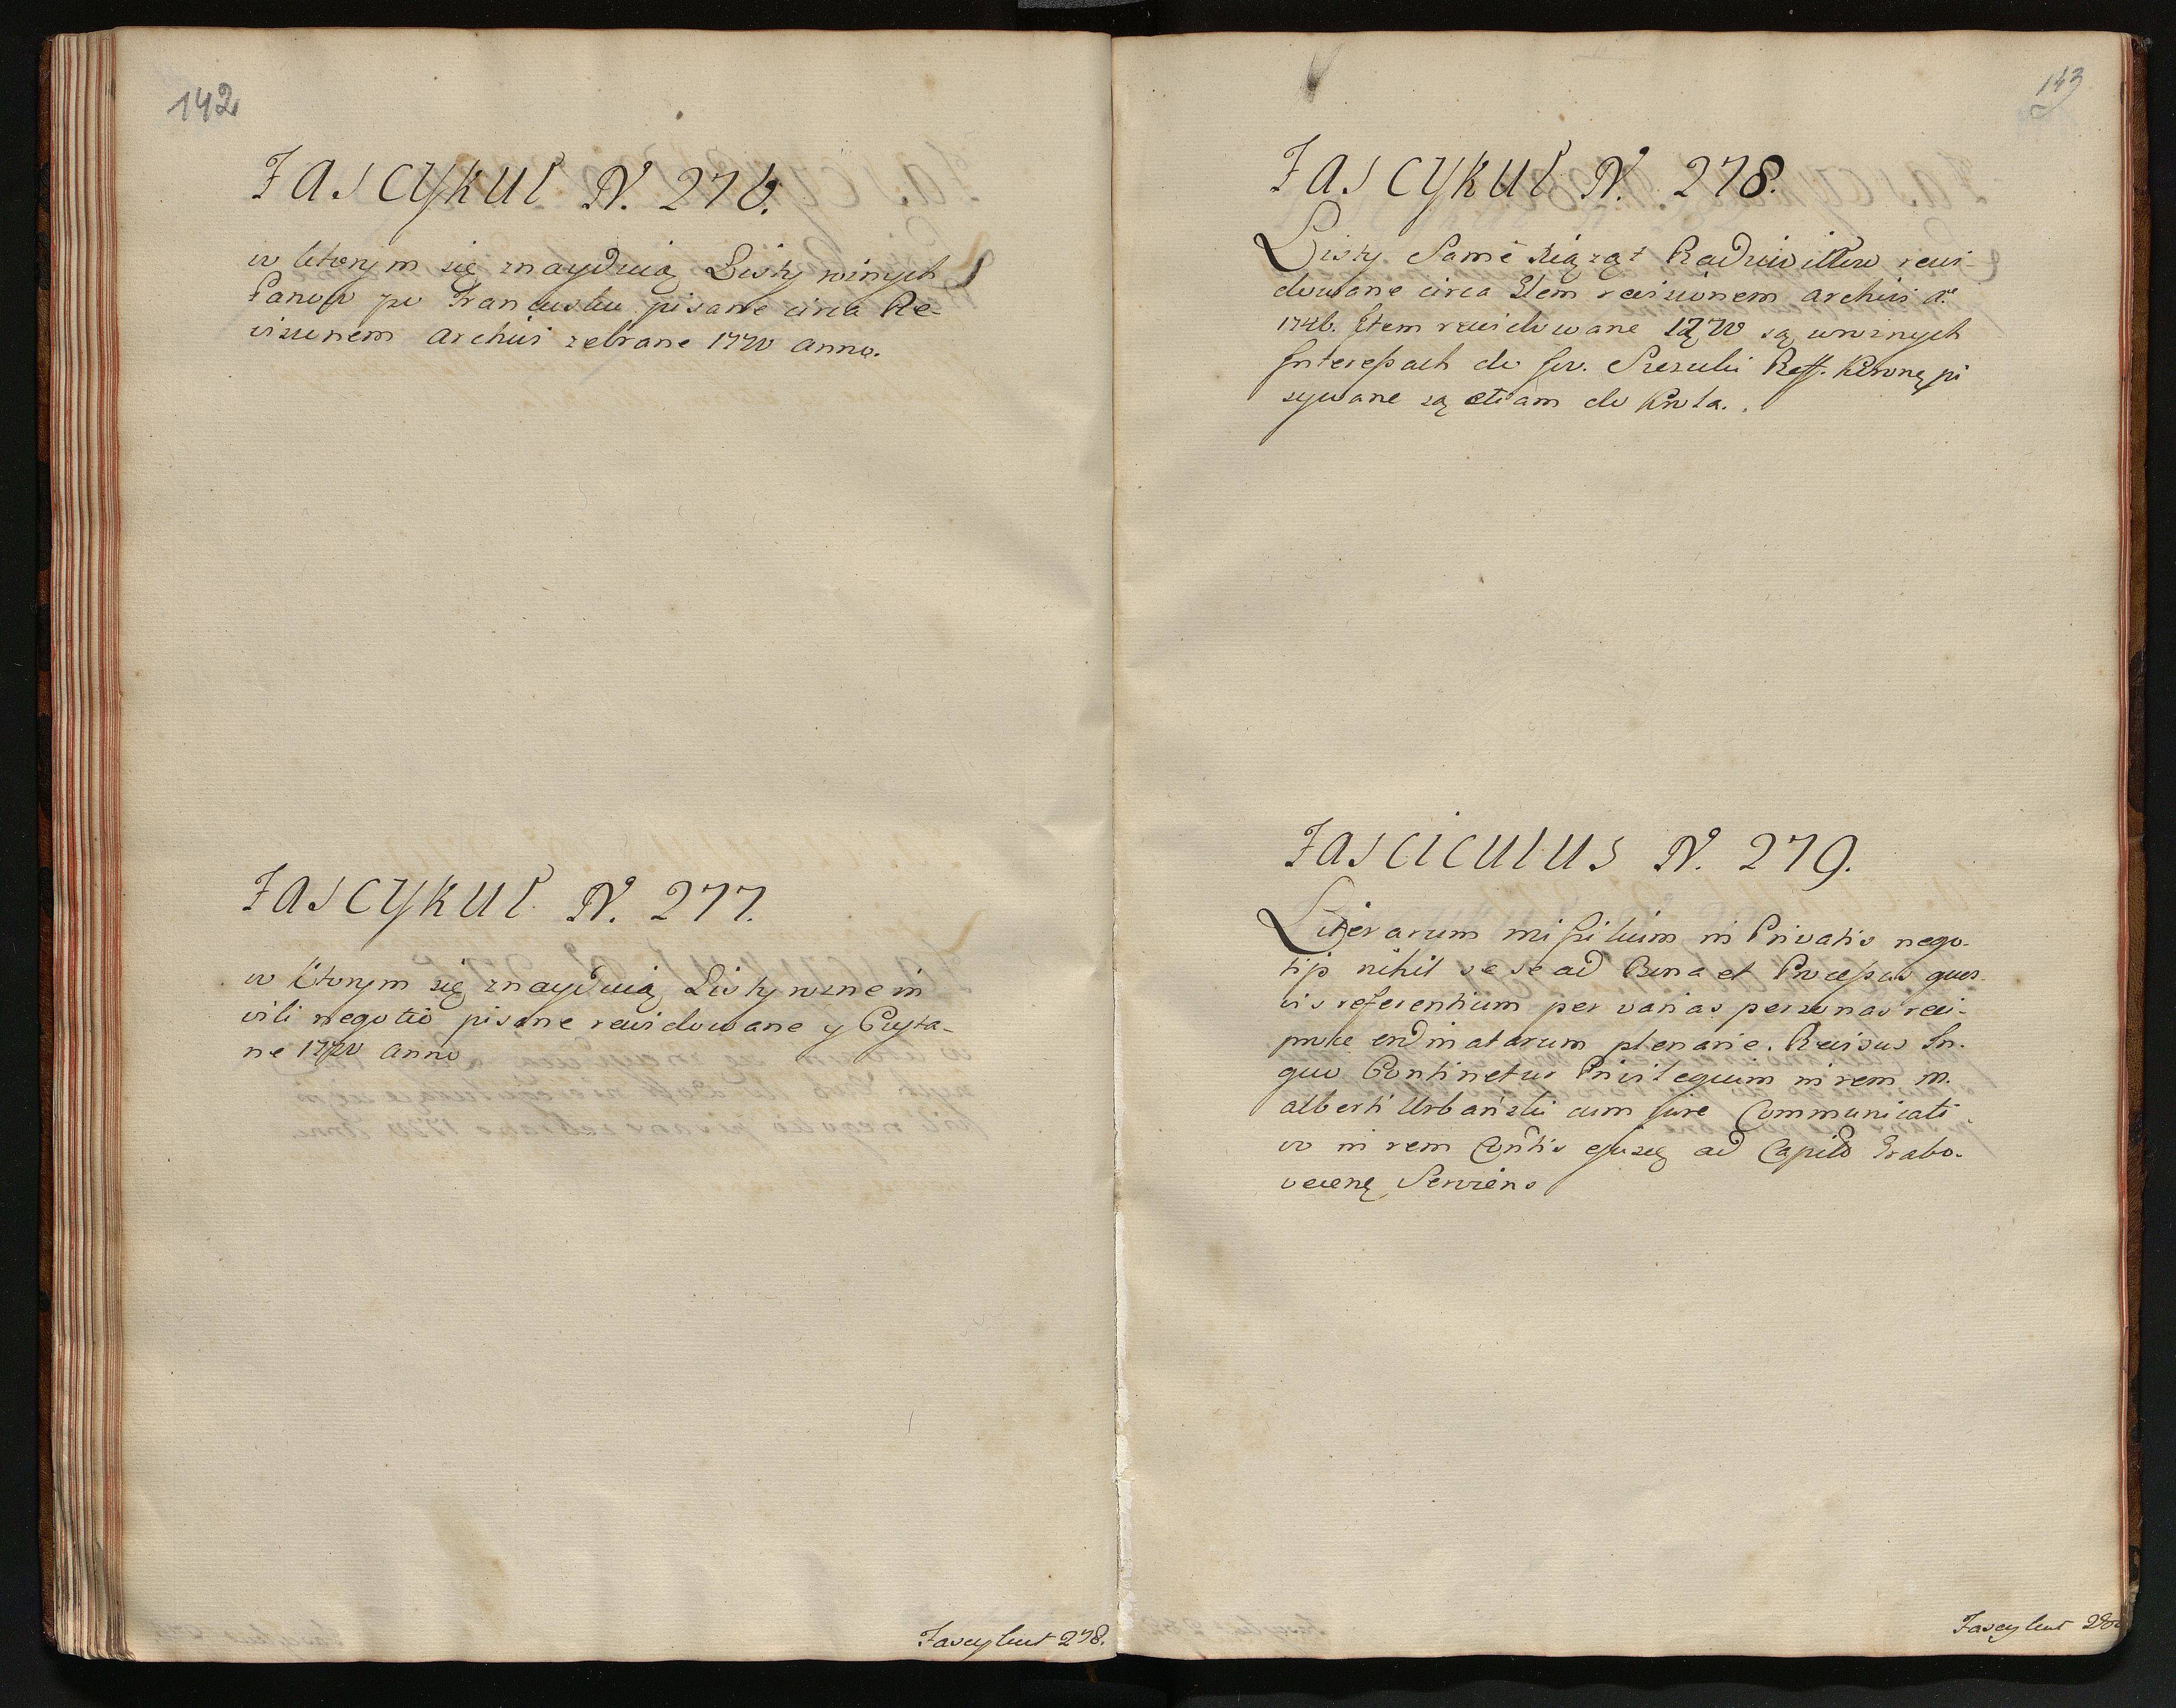 142
Fascykuł N. 276.
w ktorym się znayduią Listy roznych
Panow po Francusku pisane circa Re-
visionem Archivi zebrane 1770 anno.
Fascykuł N. 277.
w ktorym się znayduią Listy rozne in
vili negotio pisane rewidowane y Czyta-
ne 1770 anno
Fascykuł 278.
143
Fascykuł N. 278.
Listy Same Xiąząt Radziwiłłow rewi-
dowane circa Item revisionem archivi a°
1746. Item rewidowane 1770 są w roznych
Interessach do
sywane są etiam do
Fasciculus N. 279.
Literarum missilium in Privatis nego-
tijs nihil se se ad Bona et Processus quos-
vis referentium per varias personas reci-
proce ordinatarum plenarie. Revisus In
quo Continetur Privilegium in rem M.
Alberti Urbański cum jure Communicati
vo in rem ad Grabo-
Serviens
Fascykuł 280